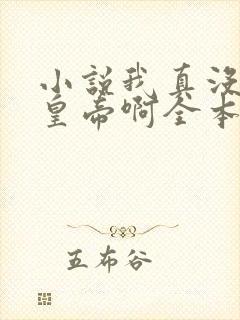 小说我真没
皇帝啊全本
五布谷